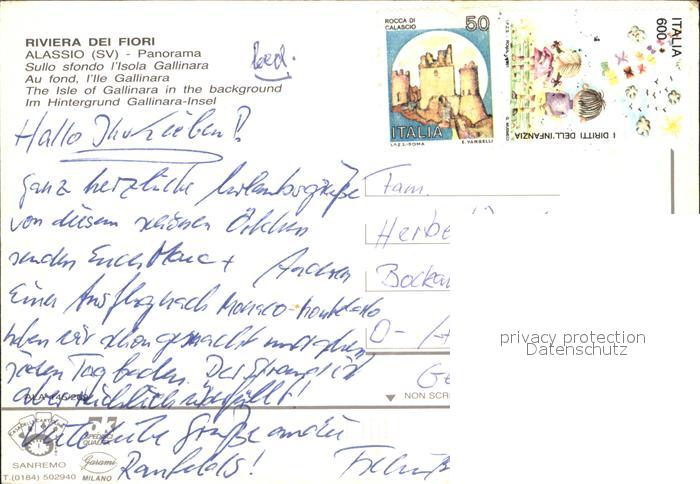 RIVIERA DEI FIORI
ALASSIO (SV) - Panorama
Sullo sfondo l'Isola Gallinara
Au fond, l'Ile Gallinara
The Isle of Gallinara in the background
Im Hintergrund Gallinara-Insel
ROCCA DI CALASCIO
50
ITALIA
I.P.Z.S.-ROMA
E. VANGELLI
ITALIA 600
I DIRITTI DELL'INFANZIA
Hallo Ihr Lieben!
ganz herzliche Urlaubsgrüße
von diesem schönen Örtchen
senden Euch + Andreas
Einen Ausflug nach Monaco-Montecarlo
haben wir schon gemacht und gehen
jeden Tag baden. Der Strand ist
aber reichlich überfüllt!
Viele liebe Grüße an die
Ranfelds!
Fam.
Herbe
D-
NON SCRI
privacy protection
Datenschutz
SANREMO
T.(0184) 502940
Garami
MILANO